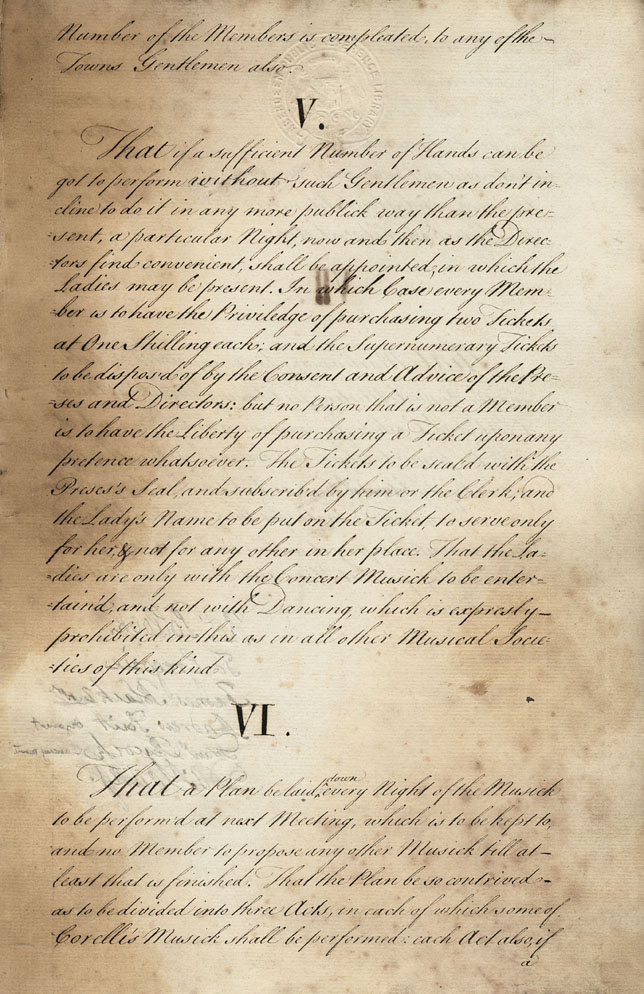 Number of the Members is compleated, to any of the
Towns Gentlemen also.
V.
That if a sufficient Number of Hands can be
got to perform without such Gentlemen as don't in-
cline to do it in any more publick way than the pre-
sent, a particular Night, now and then as the Direc-
tors find convenient, shall be appointed, in which the
Ladies may be present. In which Case every Mem-
ber is to have the Priviledge of purchasing two Tickets
at One Shilling each; and the Supernumerary Tickets
to be dispos'd of by the Consent and Advice of the Pre-
ses and Directors: but no Person that is not a Member
is to have the Liberty of purchasing a Ticket upon any
pretence whatsoever. The Tickets to be seal'd with the
Preses's Seal, and subscrib'd by him or the Clerk; and
the Lady's Name to be put on the Ticket, to serve only
for her, & not for any other in her place. That the La-
dies are only with the Concert Musick to be enter-
tain'd, and not with Dancing, which is expresly
prohibited in this as in all other Musical Socie-
ties of this kind
VI.
That a Plan be laid down every Night of the Musick
to be perform'd at next Meeting, which is to be kept to,
and no Member to propose any other Musick till at
least that is finished. That the Plan be so contrived
as to be divided into three Acts, in each of which some of
Corelli's Musick shall be performed: each Act also, if
a